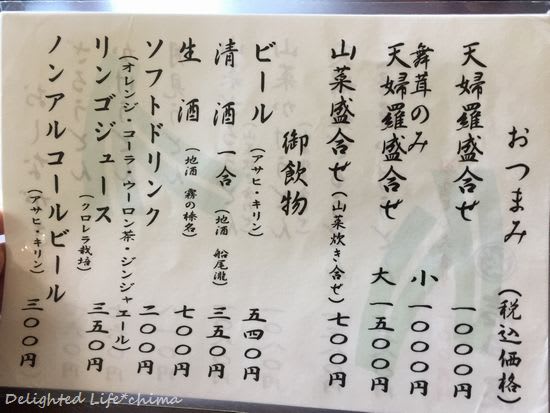 おつまみ (税込価格)
天婦羅盛合せ 一〇〇〇円
舞茸のみ
天婦羅盛合せ 小 一〇〇〇円
大 一五〇〇円
山菜盛合せ(山菜炊き合せ) 七〇〇円
御飲物
ビール(アサヒ・キリン) 五四〇円
清酒一合(地酒 船尾瀧) 三五〇円
生酒(地酒 霧の榛名) 七〇〇円
ソフトドリンク 二〇〇円
(オレンジ・コーラ・ウーロン茶・ジンジャエール)
リンゴジュース(クロレラ栽培) 三五〇円
ノンアルコールビール(アサヒ・キリン) 三〇〇円
Delighted Life*chima